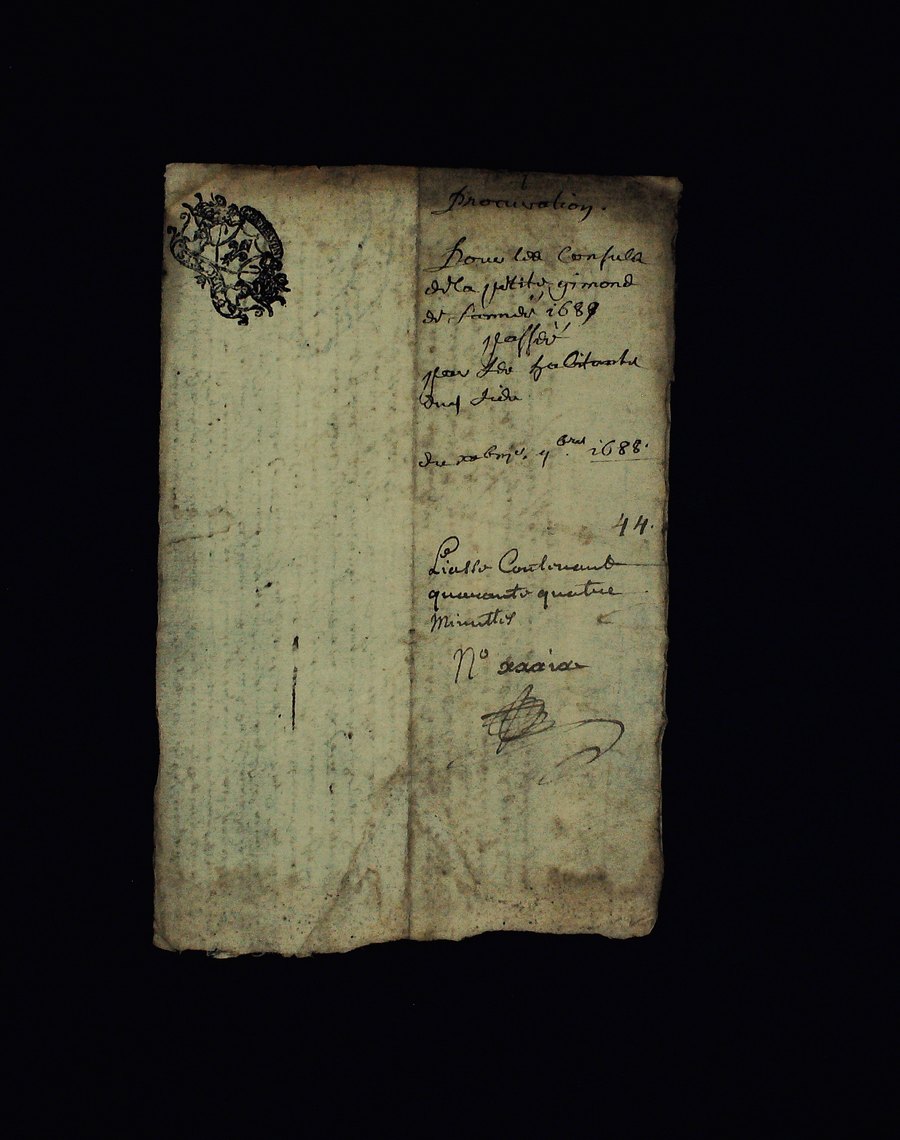 Procuration.
Pour les Consuls
de la petite gimond
de l'année 1689
passeé
par les habitants
dud lieu
du xxbmᵉ. 9bre 1688.
44.
Liasse Contenant
quarante quatre
Minuttes
Nº xxxix